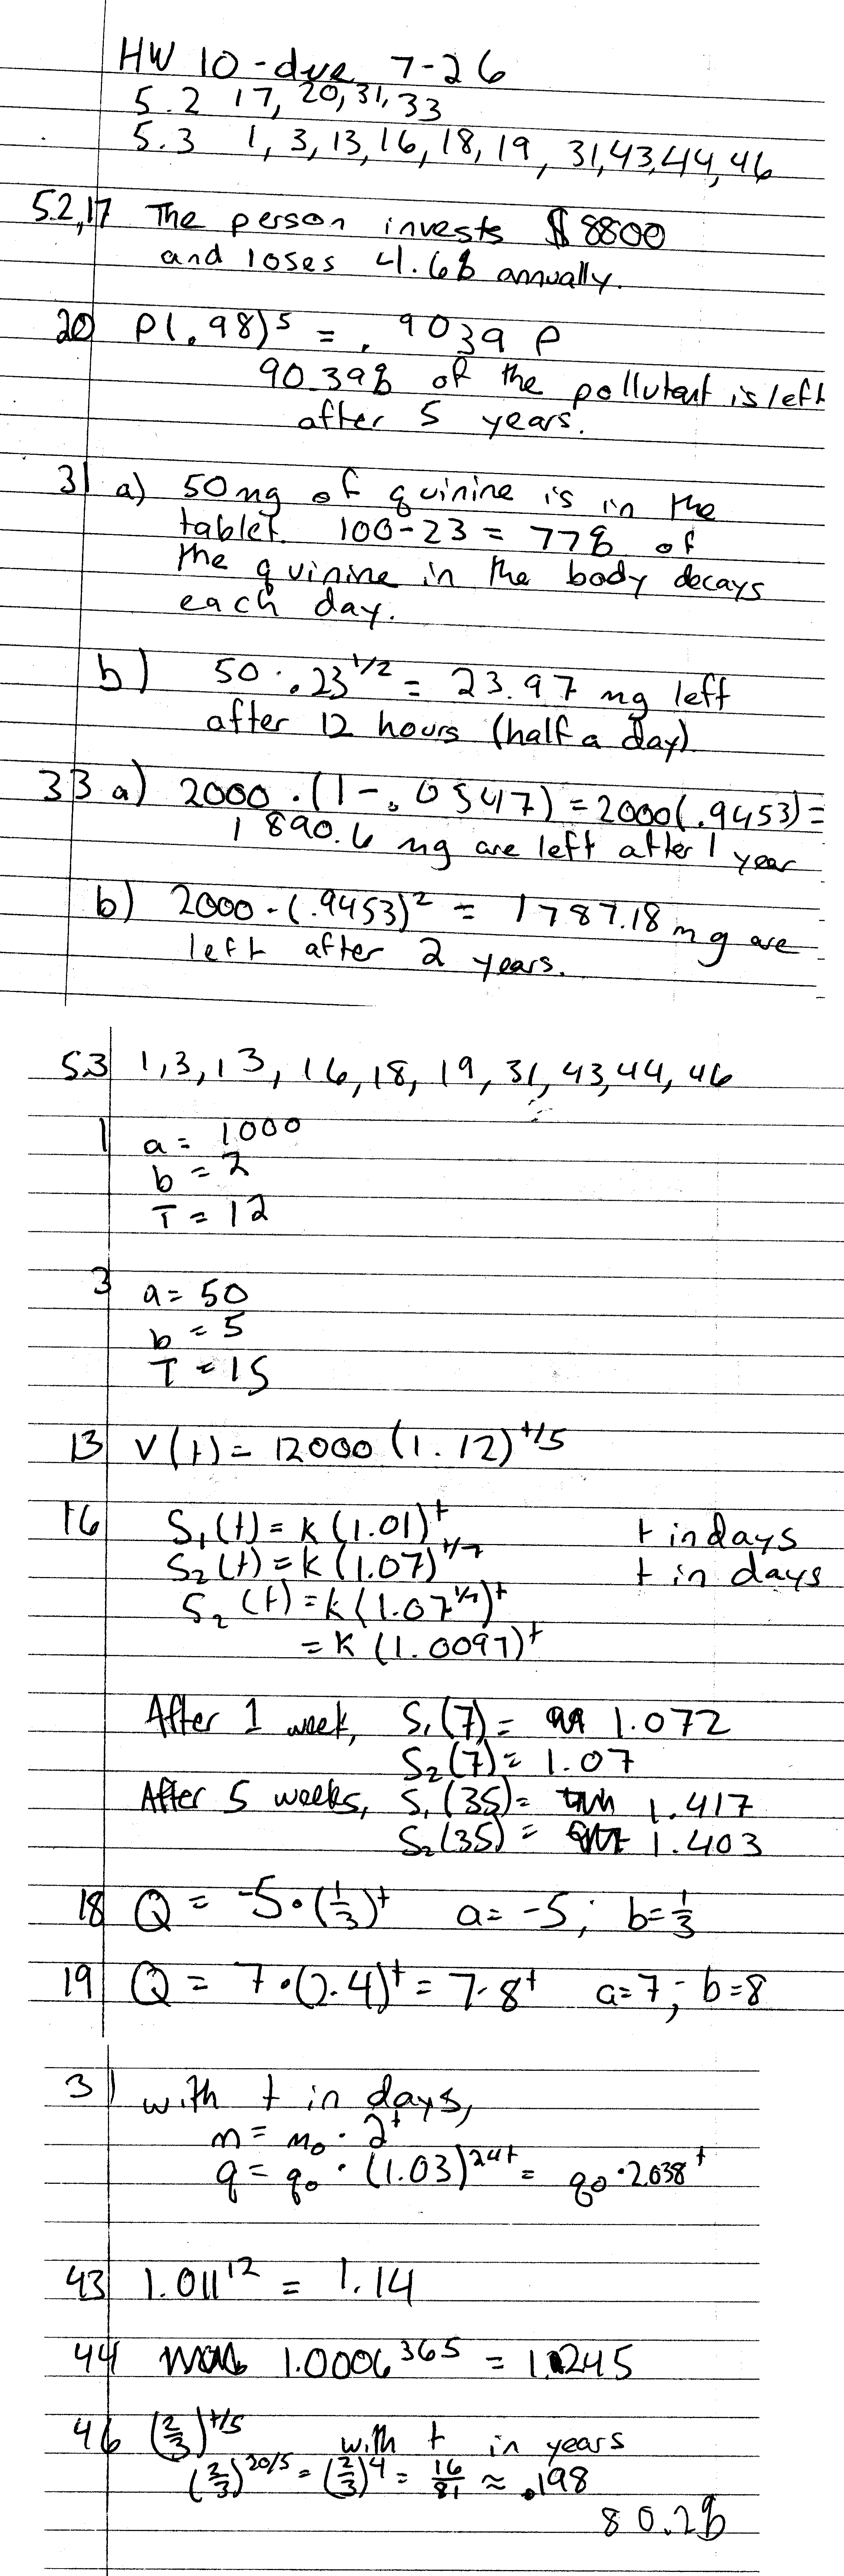 HW 10 - due 7-26
5.2 17, 20, 31, 33
5.3 1, 3, 13, 16, 18, 19, 31, 43, 44, 46
5.2, 17 The person invests $8800
and loses 4.6% annually.
20 P(.98)^5 = .9039 P
90.39% of the pollutant is left
after 5 years.
31 a) 50 mg of quinine is in the
tablet. 100-23 = 77% of
the quinine in the body decays
each day.
b) 50 · .23^1/2 = 23.97 mg left
after 12 hours (half a day)
33 a) 2000 · (1-.0547) = 2000(.9453) =
1890.6 mg are left after 1 year
b) 2000 · (.9453)^2 = 1787.18 mg are
left after 2 years.
5.3 1, 3, 13, 16, 18, 19, 31, 43, 44, 46
1 a = 1000
b = 2
T = 12
3 a = 50
b = 5
T = 15
13 V(t) = 12000 (1.12)^t/5
16 S₁(t) = k(1.01)^t t in days
S₂(t) = k(1.07)^t/7 t in days
S₂(t) = k(1.07^1/7)^t
= k(1.0097)^t
After 1 week, S₁(7) = 1.072
S₂(7) = 1.07
After 5 weeks, S₁(35) = 1.417
S₂(35) = 1.403
18 Q = -5 · (1/3)^t a = -5; b = 1/3
19 Q = 7 · (2·4)^t = 7·8^t a = 7; b = 8
31 with t in days,
m = m₀ · 2^t
q = q₀ · (1.03)^24t = q₀ · 2.038^t
43 1.011^12 = 1.14
44 1.0006^365 = 1.245
46 (2/3)^t/5 with t in years
(2/3)^20/5 = (2/3)^4 = 16/81 ≈ .198
80.2%